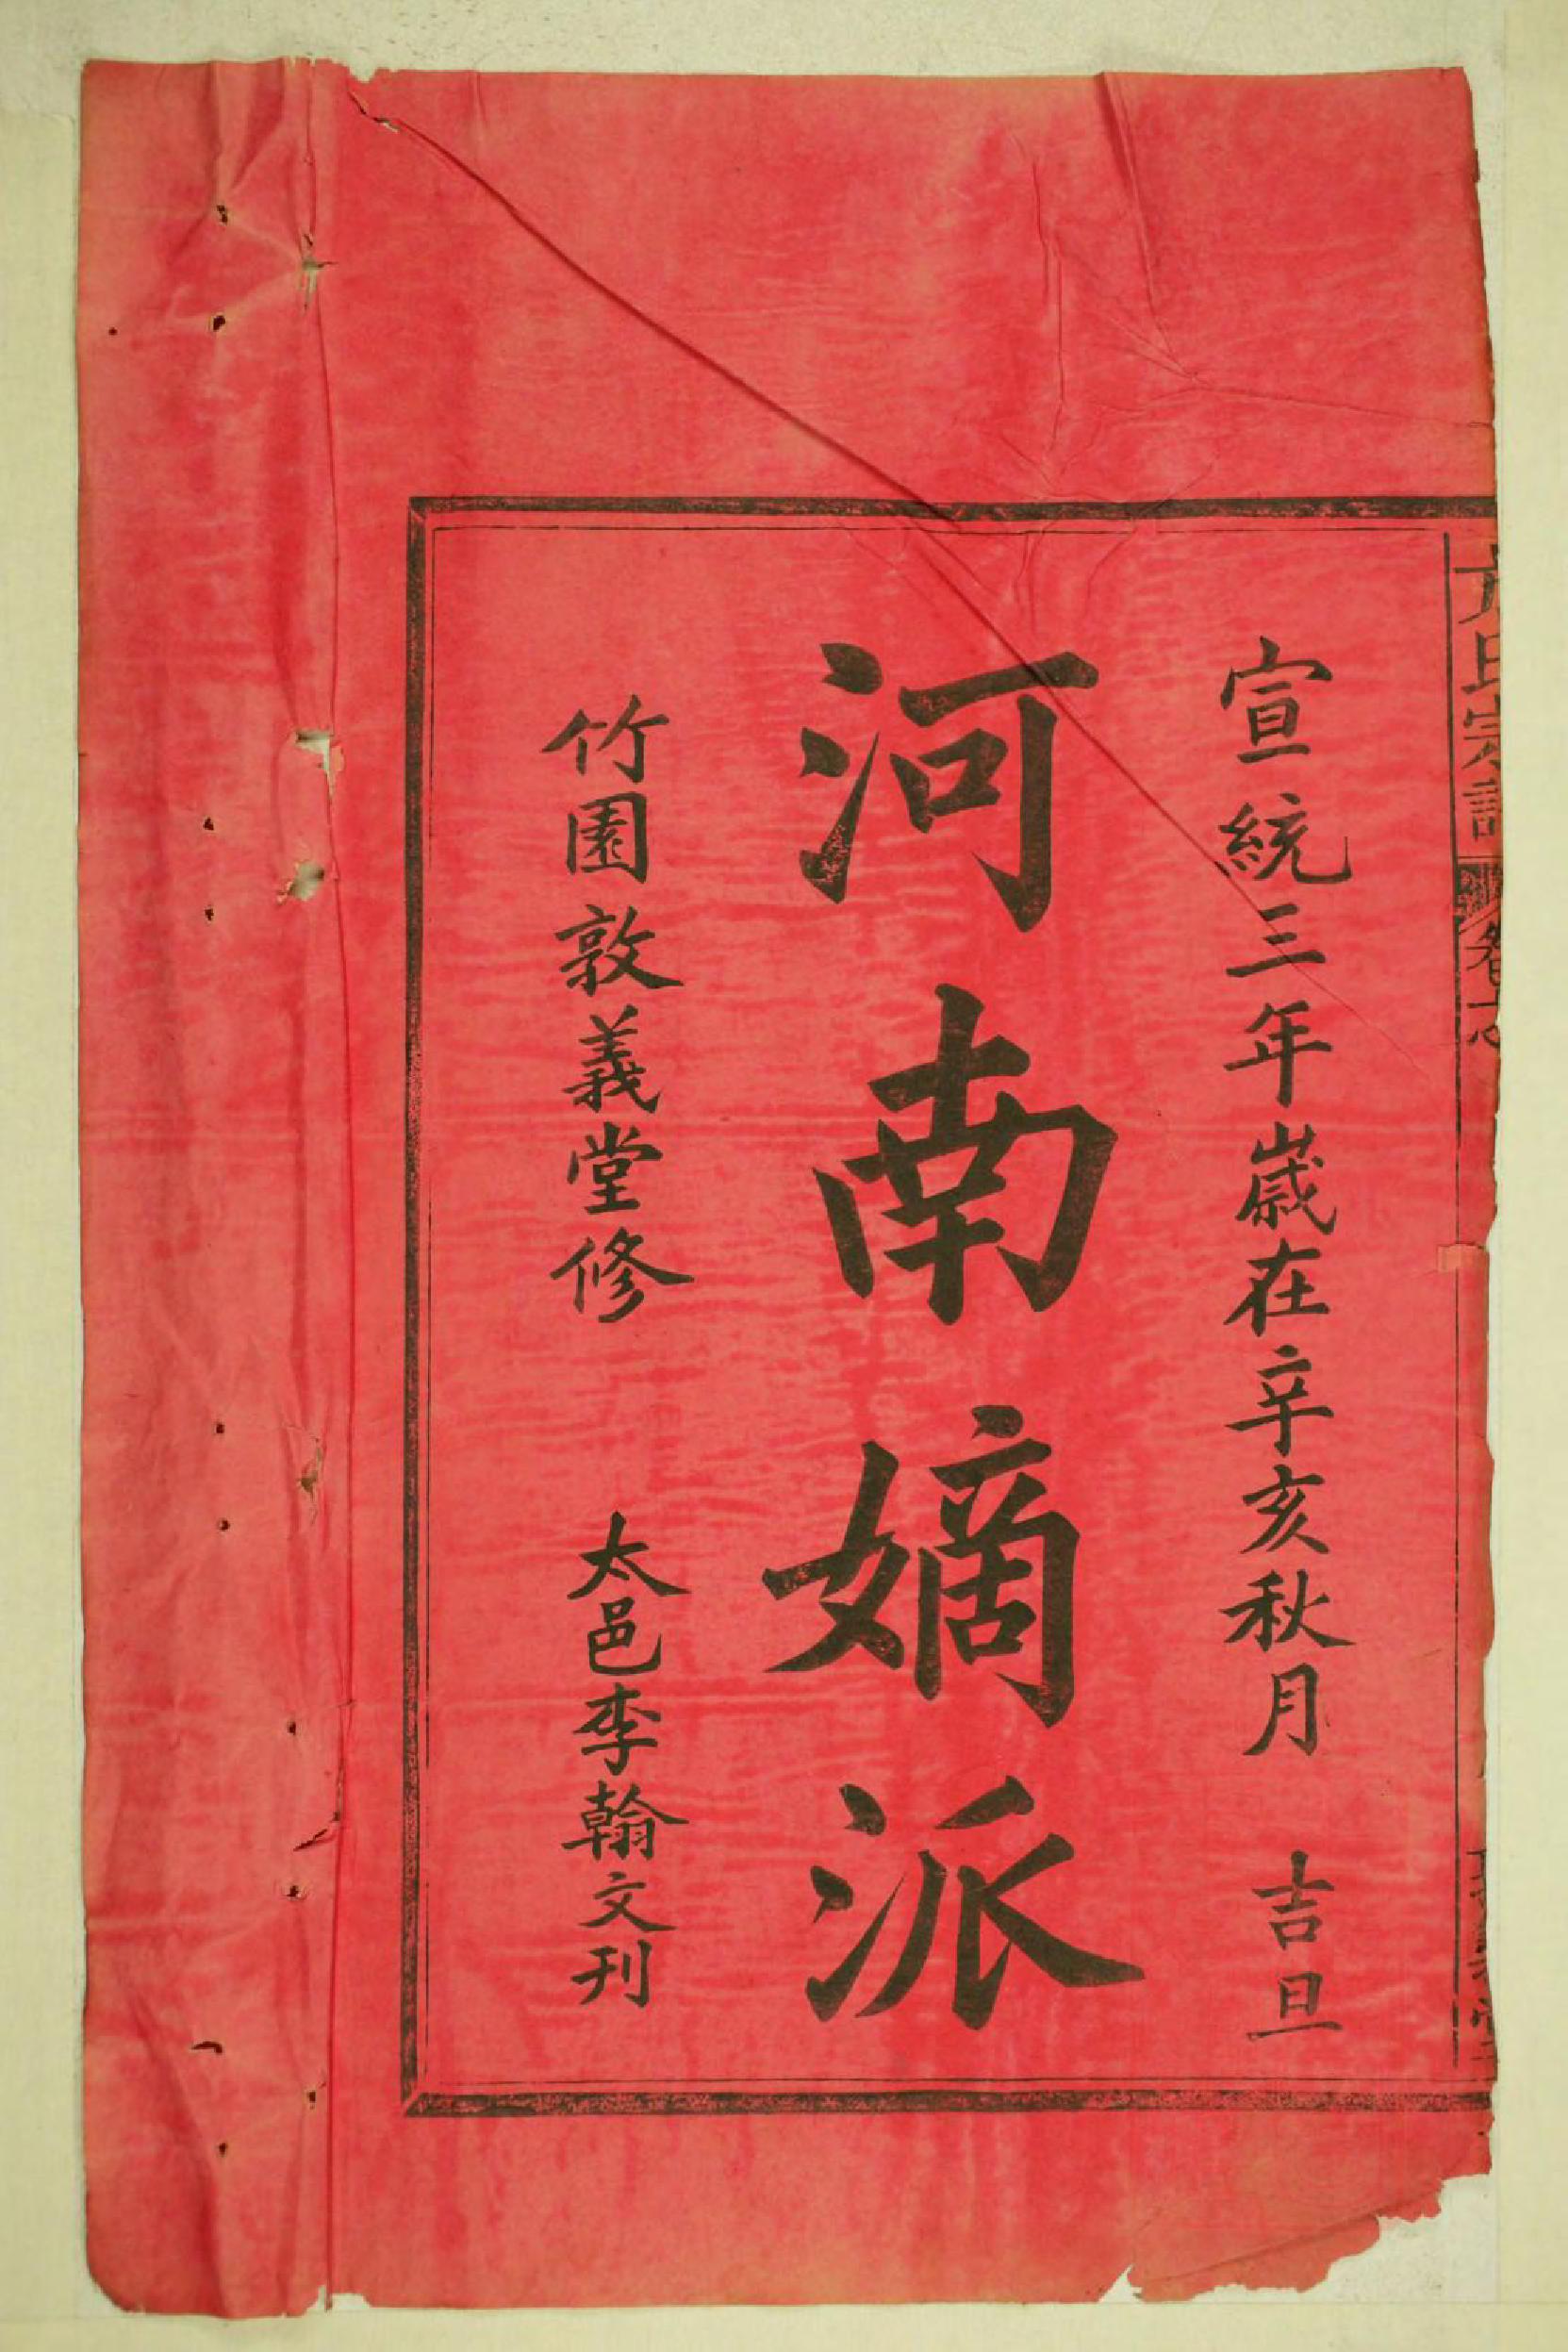 方氏宗譜 卷
宣統三年嵗在辛亥秋月 吉旦
河南嫡派
竹園敦義堂修 太邑李翰文刊